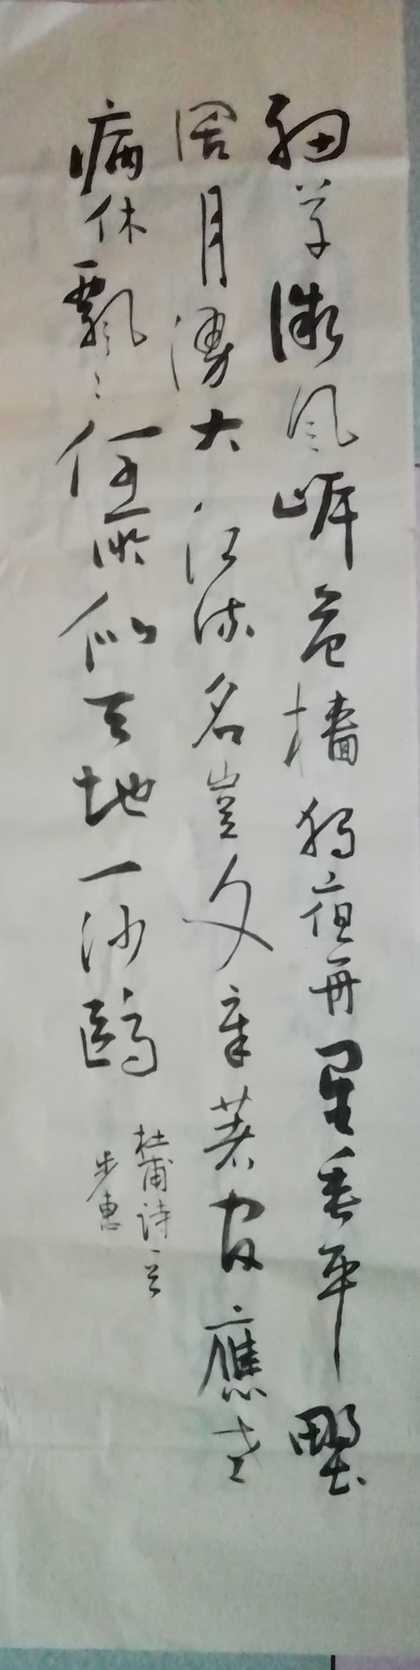 細草微風岸危檣獨夜舟星垂平野
闊月湧大江流名豈文章著官應老
病休飄〻何所似天地一沙鷗
杜甫诗一首
步惠